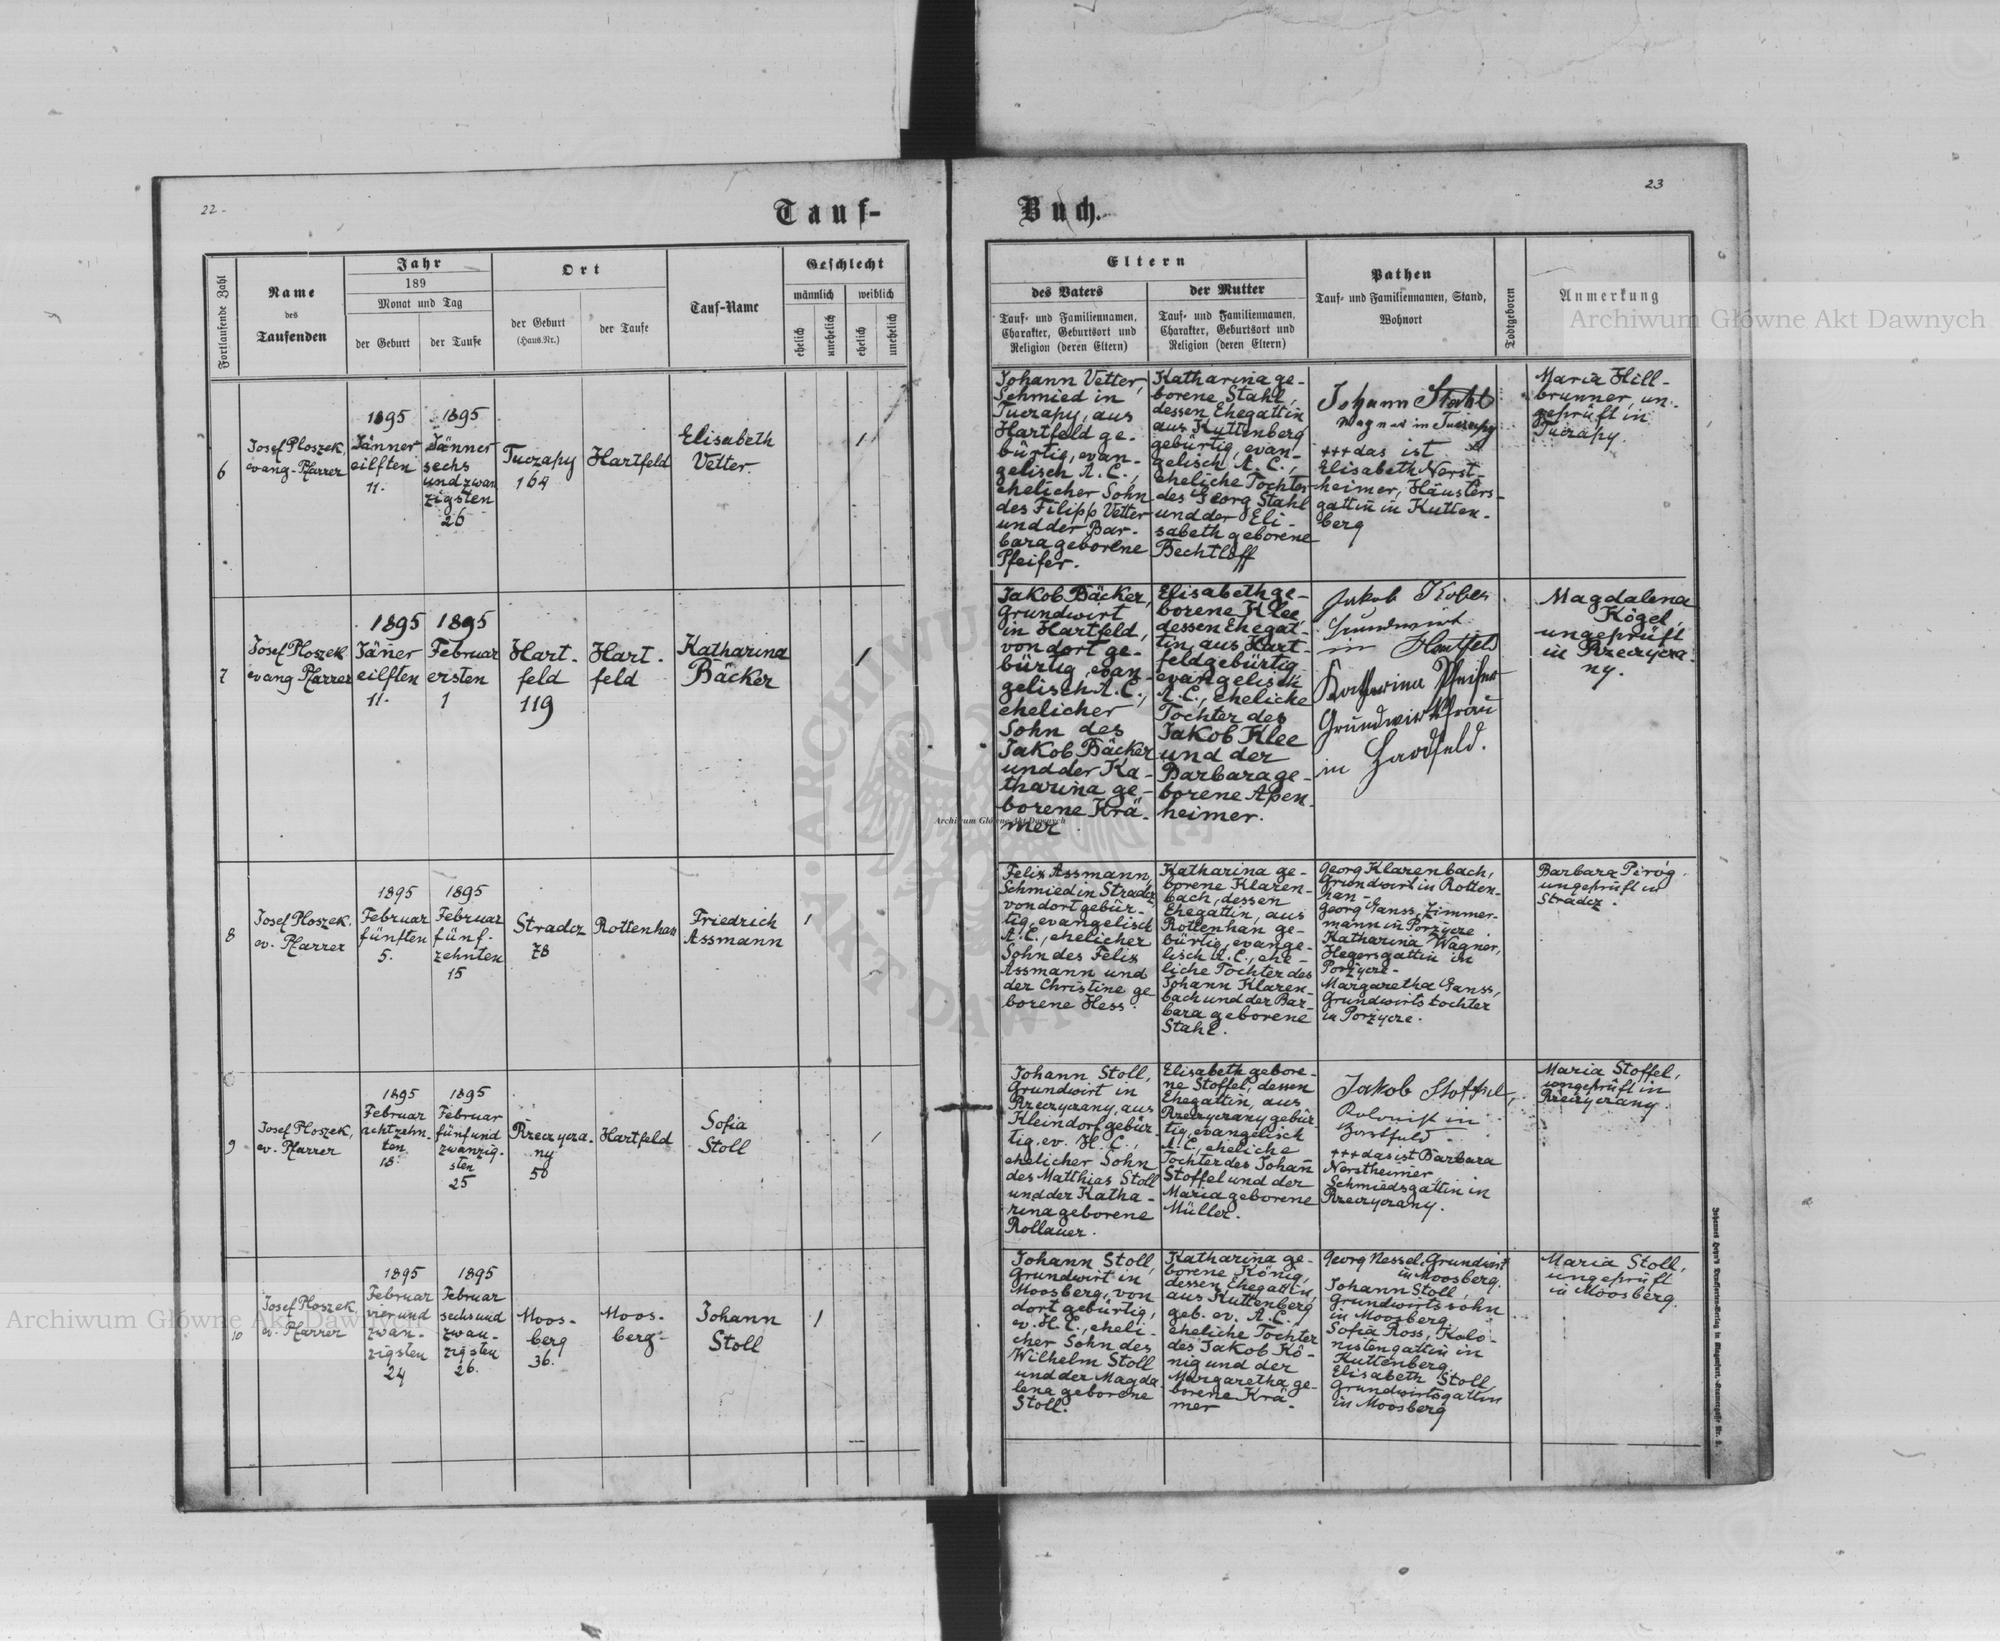 22.
Tauf-
Fortlaufende Zahl
Name
des
Taufenden
Jahr
189
Monat und Tag
der Geburt
der Taufe
Ort
der Geburt
(Haus.Nr.)
der Taufe
Tauf-Name
Geschlecht
männlich
weiblich
ehelich
unehelich
ehelich
unehelich
6
Josef Ploszek,
evang. Pfarrer
1895
Jänner
eilften
11.
1895
Jänner
sechs
und zwan
zigsten
26
Tuczapy
164
Hartfeld
Elisabeth
Vetter.
1
7
Josef Ploszek
evang Pfarrer
1895
Jäner
eilften
11.
1895
Februar
ersten
1
Hart-
feld
119
Hart-
feld
Katharina
Bäcker
1
8
Josef Ploszek.
ev. Pfarrer
1895
Februar
fünften
5.
1895
Februar
fünf-
zehnten
15
Stradcz
78
Rottenhan
Friedrich
Assmann
1
9
Josef Ploszek,
ev. Pfarrer
1895
Februar
achtzehn-
ten
18.
1895
Februar
fünfund
zwanzig-
sten
25
Rzeczycza-
ny
50
Hartfeld
Sofia
Stoll
1
10
Josef Ploszek,
ev. Pfarrer
1895
Februar
vierund
zwan-
zigsten
24
1895
Februar
sechsund
zwan-
zigsten
26.
Moos-
berg
36.
Moos-
berg
Johann
Stoll
1
23
Buch.
Eltern
des Vaters
Tauf- und Familiennamen,
Charakter, Geburtsort und
Religion (deren Eltern)
der Mutter
Tauf- und Familiennamen,
Charakter, Geburtsort und
Religion (deren Eltern)
Pathen
Tauf- und Familiennamen, Stand,
Wohnort
Todtgeboren
Anmerkung
Johann Vetter,
Schmied in
Tuczapy, aus
Hartfeld ge-
bürtig, evan-
gelisch A. C.,
ehelicher Sohn
des Filipp Vetter
und der Bar-
bara geborene
Pfeifer.
Katharina ge-
borene Stahl,
dessen Ehegattin
aus Kuttenberg
gebürtig, evan-
gelisch A. C.,
eheliche Tochter
des Georg Stahl
und der Eli-
sabeth geborene
Bechtloff
Johann Stahl
in Tuczapy
+++das ist
Elisabeth Nerst-
heimer, Häuslers-
gattin in Kutten-
berg
Maria Hill-
brunner, un-
geprüft in
Tuczapy.
Jakob Bäcker,
Grundwirt
in Hartfeld,
von dort ge-
bürtig, evan-
gelisch A. C.,
ehelicher
Sohn des
Jakob Bäcker
und der Ka-
tharina ge-
borene Krä-
mer
Elisabeth ge-
borene Klee,
dessen Ehegat-
tin, aus Hart-
feld gebürtig
evangelisch
A. C., eheliche
Tochter des
Jakob Klee
und der
Barbara ge-
borene Apen-
heimer.
Jakob Kober
Grundwirt
in Hartfeld
Katharina Pfeifer
Grundwirthfrau
in Hardfeld.
Magdalena
Kögel,
ungeprüft
in Rzeczycza-
ny.
Felix Assmann,
Schmied in Stradcz,
von dort gebür-
tig, evangelisch
A. C., ehelicher
Sohn des Felix
Assmann und
der Christine ge-
borene Hess.
Katharina ge-
borene Klaren-
bach, dessen
Ehegattin, aus
Rottenhan ge-
bürtig, evange-
lisch A. C., ehe-
liche Tochter des
Johann Klaren-
bach und der Bar-
bara geborene
Stahl.
Georg Klarenbach,
Grundwirt in Rotten-
han-
Georg Ganss, Zimmer-
mann in Porzycze.
Katharina Wagner,
Hegersgattin in
Porzycze-
Margaretha Ganss,
Grundwirtstochter
in Porzycze.
Barbara Piróg.
ungeprüft in
Stradcz.
Johann Stoll,
Grundwirt in
Rzeczyczany, aus
Kleindorf gebür-
tig, ev. H. C.,
ehelicher Sohn
des Matthias Stoll
und der Katha-
rina geborene
Rollauer.
Elisabeth gebore-
ne Stoffel, dessen
Ehegattin, aus
Rzeczyczany gebür-
tig, evangelisch
A. C., eheliche
Tochter des Johan̄
Stoffel und der
Maria geborene
Müller.
Jakob Stoffel,
Kolonist in
+++ das ist Barbara
Nerstheimer,
Schmiedsgattin in
Rzeczyczany.
Maria Stoffel,
ungeprüft in
Rzeczyczany.
Johann Stoll,
Grundwirt in
Moosberg, von
dort gebürtig,
ev. H. C., eheli-
cher Sohn des
Wilhelm Stoll
und der Magda
lena geborene
Stoll.
Katharina ge-
borene König,
dessen Ehegattin,
aus Kuttenberg
geb. ev. A. C.,
eheliche Tochter
des Jakob Kö-
nig und der
Margaretha ge-
borene Krä-
mer
Georg Nessel, Grundwirt
in Moosberg.
Johann Stoll,
Grundwirtssohn
in Moosberg.
Sofia Ross, Kolo-
nistengattin in
Kuttenberg.
Elisabeth Stoll,
Grundwirtsgattin
in Moosberg
Maria Stoll,
ungeprüft
in Moosberg.
Archiwum Główne Akt Dawnych
Archiwum Główne Akt Dawnych
Archiwum Główne Akt Dawnych
Archiwum Główne Akt Dawnych